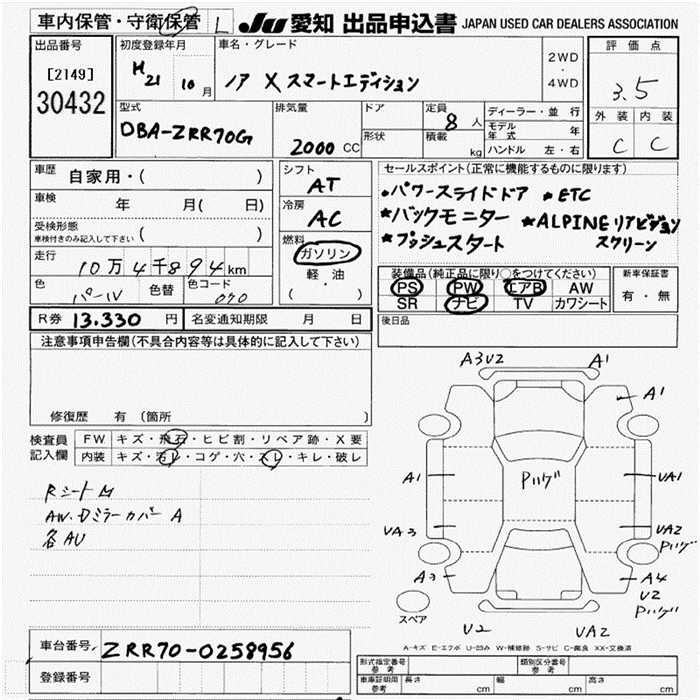 車内保管・守衛保管 L JU 愛知 出品申込書 JAPAN USED CAR DEALERS ASSOCIATION
出品番号 初度登録年月 車名・グレード 2WD・4WD 評価点
[2149] H21 10月 ノア X スマートエディション 3.5
30432
型式 排気量 ドア 定員 ディーラー・並行 外装 内装
DBA-ZRR70G 2000CC 8人 モデル年式 年 C C
形状 積載 kg ハンドル 左・右
車歴 自家用・( ) シフト セールスポイント(正常に機能するものに限ります)
AT
車検 年 月( 日) 冷房 •パワースライドドア •ETC
受検形態 AC •バックモニター •ALPINE リアビジョン
車検付きのみ記入して下さい ( ) 燃料 •プッシュスタート スクリーン
走行 ガソリン
10万4千894km 軽・油
色 色替 色コード ( ・ ) 装備品(純正品に限り○をつけてください) 新車保証書
パール 070 PS PW エアB AW 有・無
SR ナビ TV カワシート
R券 13.330円 名変通知期限 月 日 後日品
注意事項申告欄(不具合内容等は具体的に記入して下さい)
修復歴 有 (箇所
検査員 FW キズ・飛石・ヒビ割・リペア跡・X要
記入欄 内装 キズ・汚レ・コゲ・穴・スレ・キレ・破レ
RシートM
AW.Dミラーカバー A
各AU
A3V2 A1
A1
A1 Pハゲ VA1
VA3 VA2
Pハゲ
A3 A4
V2
Pハゲ
スペア V2 VA2
A-キズ E-エクボ U-凹み W-補修跡 S-サビ C-腐食 XX-交換済
車台番号 ZRR70-0258956
登録番号
形式指定番号 参考 類別区分番号 参考
車庫証明用 参考 長さ cm 幅 cm 高さ cm